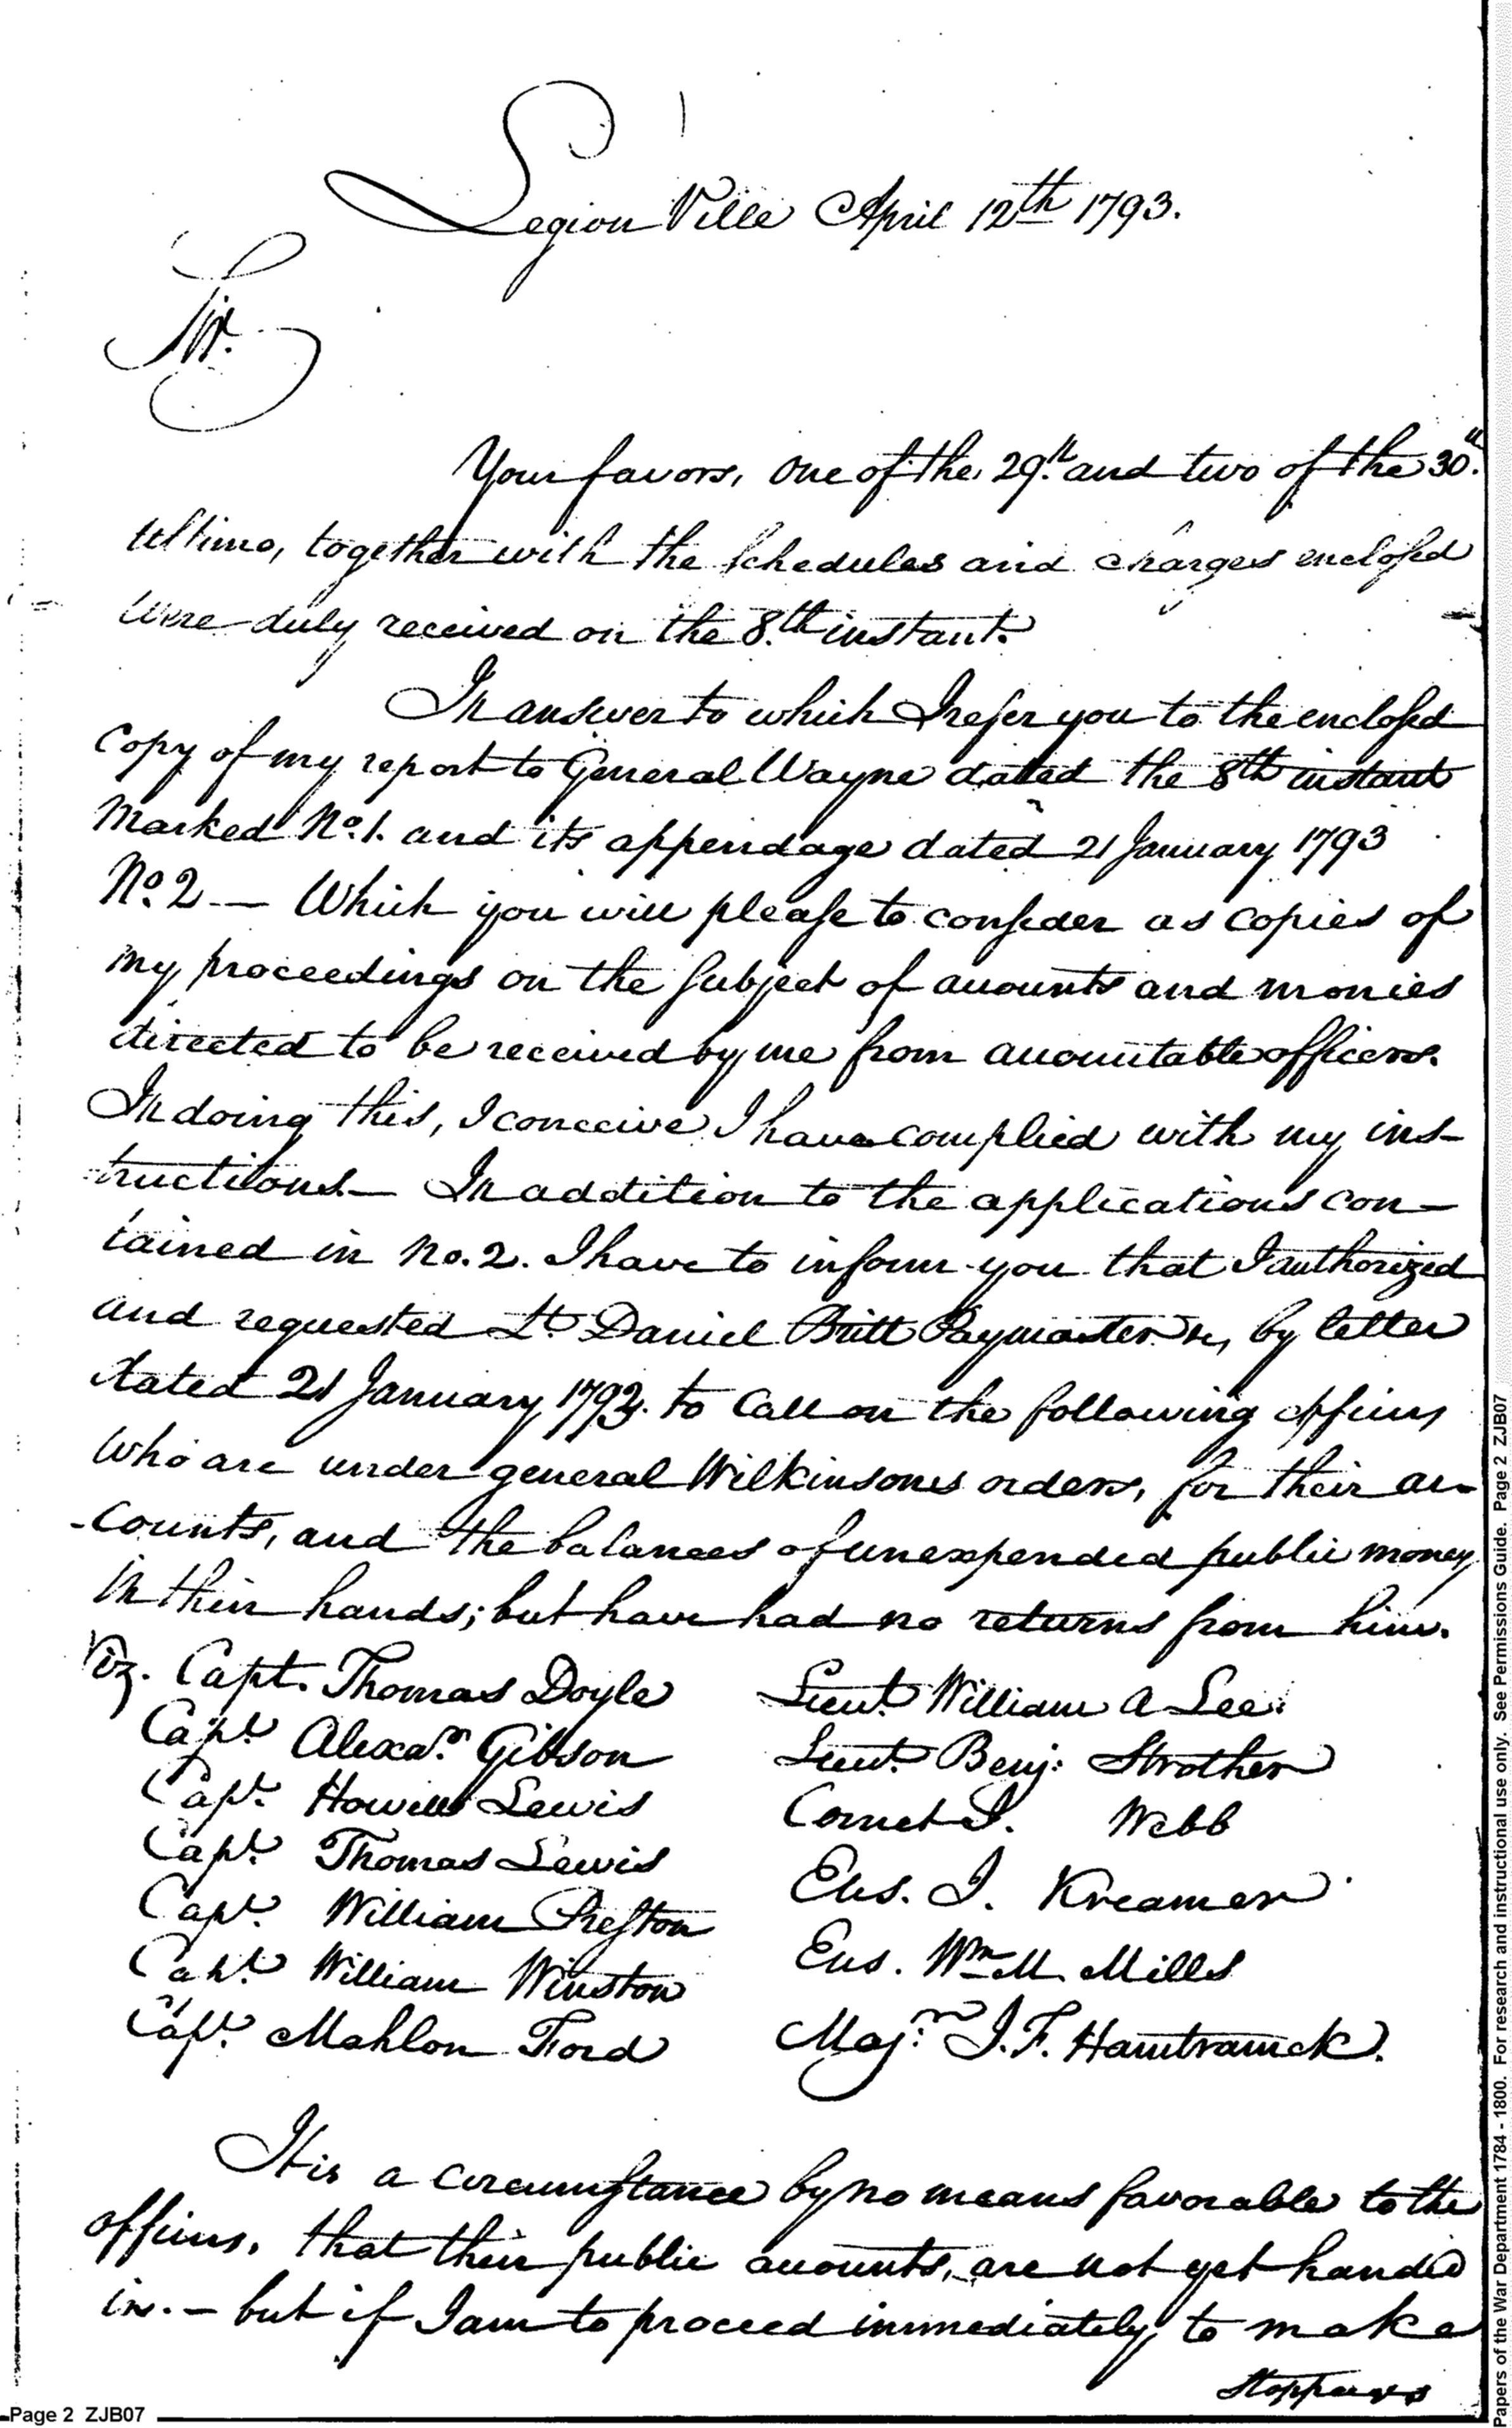 Legion Ville April 12th 1793.
Sir.
Your favors, one of the 29th. and two of the 30th.
Ultimo, together with the schedules and charges enclosed
were duly received on the 8th. instant.
In answer to which I refer you to the enclosed
Copy of my report to General Wayne dated the 8th instant
Marked No. 1. and its appendage dated 21 January 1793
No. 2 — Which you will please to consider as copies of
my proceedings on the subject of accounts and monies
directed to be received by me from accountable officers.
In doing this, I conceive I have complied with my ins-
-tructions — In addition to the applications con-
tained in No. 2. I have to inform you that I authorized
and requested Lt. Daniel Britt Paymaster &c, by letter
dated 21 January 1793. to Call on the following officers
who are under general Wilkinsons orders, for their ac-
-counts, and the balances of unexpended public money
in their hands; but have had no returns from him.
Viz. Capt. Thomas Doyle Lieut. William A Lee.
Capt. Alexa.r Gibson Lieut. Benj: Strother
Capt. Howell Lewis Cornet J. Webb
Capt. Thomas Lewis Ens. J. Kreamer
Capt. William Preston Ens. Wm M. Mills
Capt. William Winston Maj:r J. F. Hamtramck.
Capt. Mahlon Ford
It is a circumstance by no means favorable to the
officers, that their public accounts, are not yet handed
in. — but if I am to proceed immediately to make
stoppages
Page 2 ZJB07
Papers of the War Department 1784 - 1800. For research and instructional use only. See Permissions Guide. Page 2 ZJB07